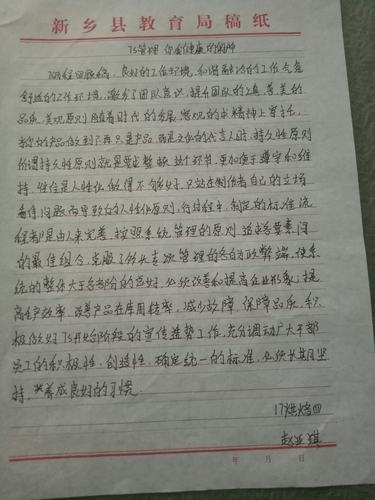 新乡县教育局稿纸
7S管理 你会健康
良好的工作环境,和谐融洽的工作气氛
舒适的工作环境,激发了团队意识,提升团队的真善美的
品质,美观原则 随着时代的发展,客观的 求精神上寄托,
的产品做到了不只是产品,而是文化的代言人时,持久性原则
持久性原则就是要 整 这个环节,更加便于遵守和维
持,往往是人性化做得不够好,只站在制作者自己的立场
看待问题而导致的人性化原则,行过程中,制定的标准流
程都是由人来完善,按照系统管理的原则,追求各要素间
的最佳组合,克服了 管理的各自为政弊端,使系
统的整体大于各部分的总和,必须改善和提高企业形象,提
高生产效率,改善产品在库周转率,减少故障,保障品质,积
极做好7S开始阶段的宣传造势工作,充分调动广大干部
员工的积极性,创造性,确定统一的标准,必须长期坚
持,养成良好的习惯。
17烘焙四
赵亚琪
年 月 日